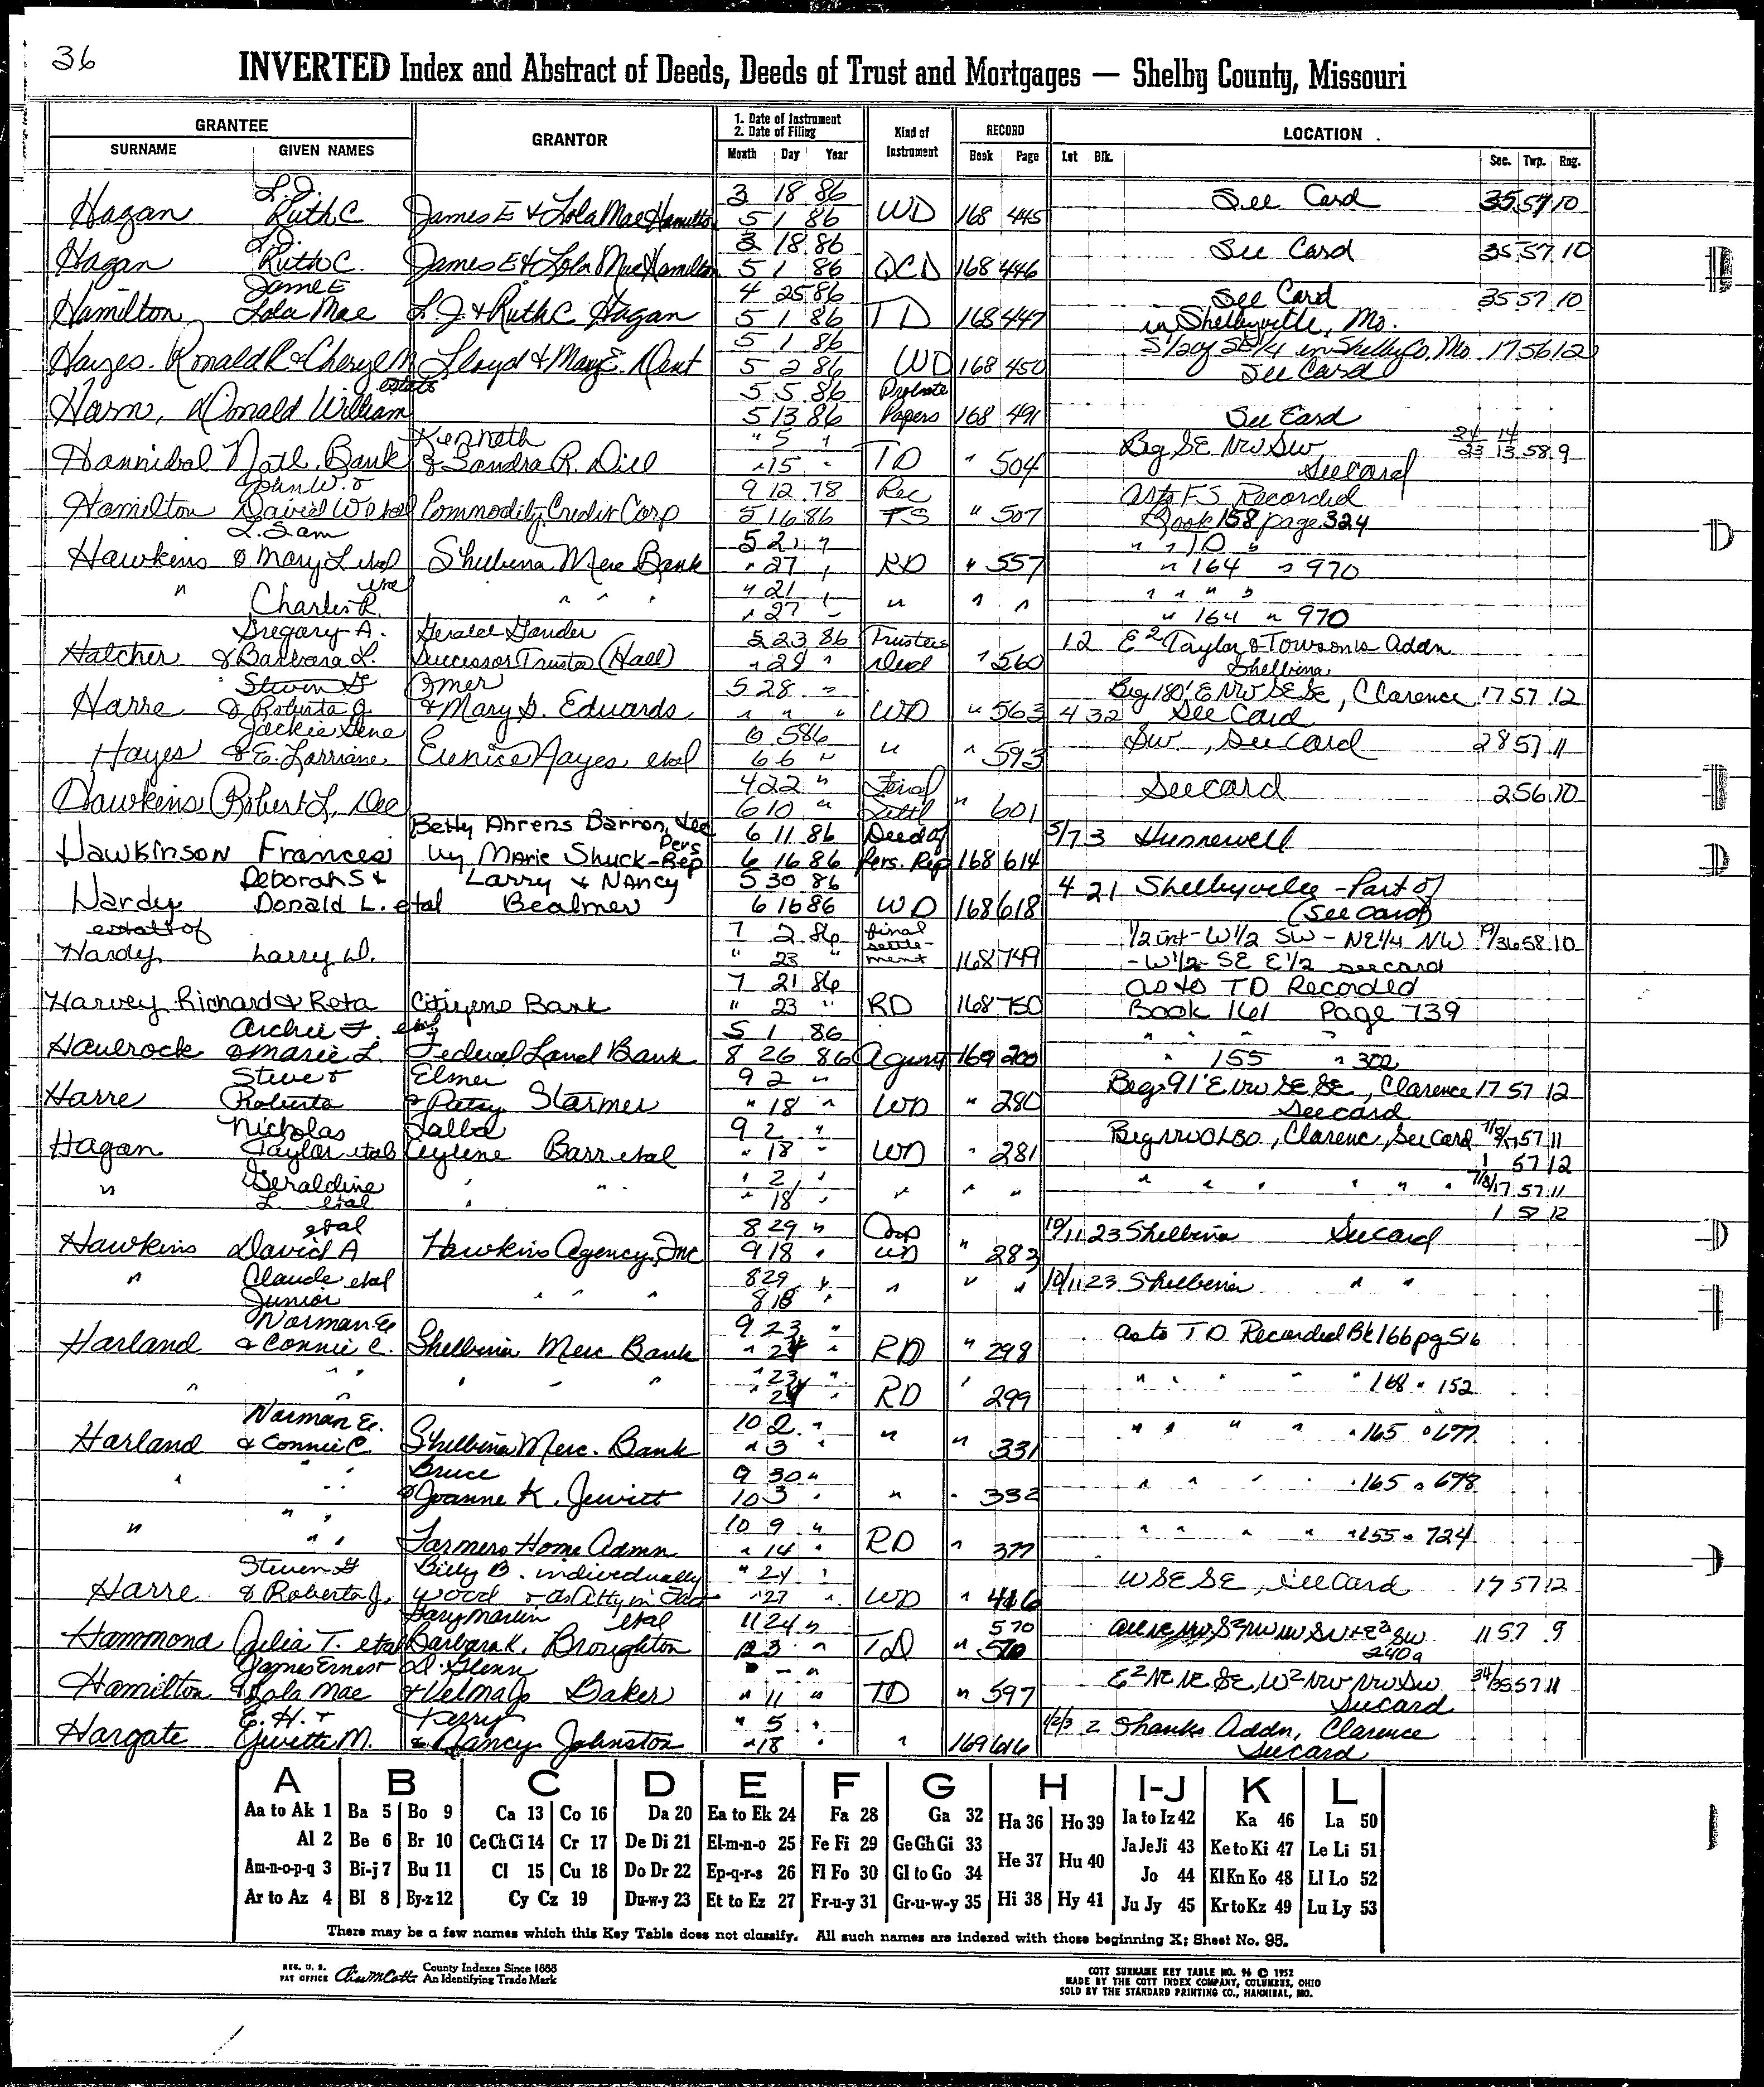 36
INVERTED Index and Abstract of Deeds, Deeds of Trust and Mortgages — Shelby County, Missouri
GRANTEE
SURNAME GIVEN NAMES
GRANTOR
1. Date of Instrument
2. Date of Filing
Month Day Year
Kind of
Instrument
RECORD
Book Page
LOCATION
Lot Blk.
Sec. Twp. Rng.
L.J. 3 18 86 See Card 35 57 10
Hagan Ruth C James E & Lola Mae Hamilton 5 1 86 WD 168 445
L.J. 3 18 86 See Card 35 57 10
Hagan Ruth C. James E & Lola Mae Hamilton 5 1 86 QCD 168 446
James E 4 25 86 See Card 35 57 10
Hamilton Lola Mae L.J. & Ruth C Hagan 5 1 86 TD 168 447 in Shelbyville, Mo.
5 1 86 S 1/2 of SE 1/4 in Shelby Co, Mo 17 56 12
Hayes. Ronald R & Cheryl M Lloyd & Mary E. Dent 5 2 86 WD 168 450 See Card
estate 5 5 86 Probate
Harn, Donald William 5 13 86 Papers 168 491 See Card
Kenneth " 5 " Beg SE NW SW 24 14
Hannibal Natl. Bank & Sandra R. Dill " 15 " TD " 504 See Card 23 13 58 9
John W. & 9 12 78 Rec As to FS Recorded
Hamilton David W etal Commodity Credit Corp 5 16 86 FS " 507 Book 158 page 324
L. Sam 5 21 " " " TD "
Hawkins & Mary L etal Shelbina Merc Bank " 27 " RD " 557 " 164 " 970
" Charles R. etal " " " " 21 " " " " "
" 27 " " " " " 164 " 970
Gregory A. Gerald Gander 5 23 86 Trustees 12 E2 Taylor & Towson's Addn
Hatcher & Barbara L. Successor Trustee (Hall) " 28 " Deed " 560 Shelbina
Steven G Omer 5 28 " Beg 180' E NW SE SE, Clarence 17 57 12
Harre & Roberta J. & Mary G. Edwards " " " WD " 563 4 32 See Card
Jackie Gene 6 5 86 SW, See Card 28 57 11
Hayes & E. Lorriane Eunice Hayes etal 6 6 " " " 593
4 22 " Final See card 2 56 10
Hawkins Robert L, Dec 6 10 " Settl " 601
Betty Ahrens Barron, Dec 6 11 86 Deed of 5/7 3 Hunnewell
Hawkinson Frances by Marie Shuck-Pers Rep 6 16 86 Pers. Rep 168 614
Deborah S & Larry & Nancy 5 30 86 4 21 Shelbyville - Part of
Hardy Donald L. etal Bealmer 6 16 86 WD 168 618 (See Card)
estate of 7 2 86 final 1/2 int - W 1/2 SW - NE 1/4 NW 19/36 58 10
Hardy Larry D. " 23 " settlement 168 749 - W 1/2 SE E 1/2 see card
7 21 86 as to TD Recorded
Harvey Richard & Reta Citizens Bank " 23 " RD 168 750 Book 161 Page 739
Archie F. etal 5 1 86 " " " "
Hawrock & Marie L. Federal Land Bank 8 26 86 Agmt 169 200 " 155 " 302
Steve & Elmer 9 2 " Beg 91' E NW SE SE, Clarence 17 57 12
Harre Roberta & Patsy Starmer " 18 " WD " 280 See card
Nicholas 9 2 " Beg NW OL 80, Clarenc, See Card 7/8/17 57 11
Hagan Taylor etal Barr etal " 18 " WD " 281 1 57 12
" Geraldine " " " 2 " " " " " " " 7/8/17 57 11
L. etal " " 18 " " " " 1 57 12
etal 8 29 " Corp 10/11 23 Shelbina See card
Hawkins David A Hawkins Agency, Inc 9 18 " WD " 283
" Claude etal " " " 8 29 " " " " 10/11 23 Shelbina " "
Junior 8 18 "
Norman E 9 23 " as to TD Recorded Bk 166 pg 516
Harland & Connie C. Shelbina Merc Bank " 24 " RD " 298
" " " " " " " 23 " " " " " " 168 " 152
" 24 RD " 299
Norman E. 10 2 " " " " " " 165 " 677
Harland & Connie C. Shelbina Merc. Bank " 3 " " " 331
" " " Bruce 9 30 " " " " " " 165 " 678
& Joanne K. Jewitt 10 3 " " " 332
" " " 10 9 " " " " " " 155 " 724
" " Farmers Home Admn " 14 " RD " 377
Steven G Billy B. individually " 24 " W SE SE, See Card 17 57 12
Harre & Roberta J. Wood & as Atty in Fact " 27 " WD " 416
Gary Martin etal 11 24 " 570
Hammond Celia T. etal Barbara K. Broughton 12 3 " TD " 570 240a 11 57 9
James Ernest D. Glenn " - " E2 NE NE SE, W2 NW NW SW 34/35 57 11
Hamilton & Lola Mae & Velma Jo Baker " 11 " TD " 597 See card
E. H. & Terry " 5 " 1/2/3 2 Shanks Addn, Clarence
Hargate Gwette M. & Nancy Johnston " 18 " " 169 616 See card
A B C D E F G H I-J K L
Aa to Ak 1 Ba 5 Bo 9 Ca 13 Co 16 Da 20 Ea to Ek 24 Fa 28 Ga 32 Ha 36 Ho 39 Ia to Iz 42 Ka 46 La 50
Al 2 Be 6 Br 10 Ce Ch Ci 14 Cr 17 De Di 21 El-m-n-o 25 Fe Fi 29 Ge Gh Gi 33 He 37 Hu 40 Ja Je Ji 43 Ke to Ki 47 Le Li 51
Am-n-o-p-q 3 Bi-j 7 Bu 11 Cl 15 Cu 18 Do Dr 22 Ep-q-r-s 26 Fl Fo 30 Gl to Go 34 Jo 44 Kl Kn Ko 48 Ll Lo 52
Ar to Az 4 Bl 8 By-z 12 Cy Cz 19 Du-w-y 23 Et to Ez 27 Fr-u-y 31 Gr-u-w-y 35 Hi 38 Hy 41 Ju Jy 45 Kr to Kz 49 Lu Ly 53
There may be a few names which this Key Table does not classify. All such names are indexed with those beginning X; Sheet No. 95.
REG. U. S. PAT OFFICE County Indexes Since 1888
An Identifying Trade Mark
COTT SURNAME KEY TABLE NO. 96 © 1952
MADE BY THE COTT INDEX COMPANY, COLUMBUS, OHIO
SOLD BY THE STANDARD PRINTING CO., HANNIBAL, MO.